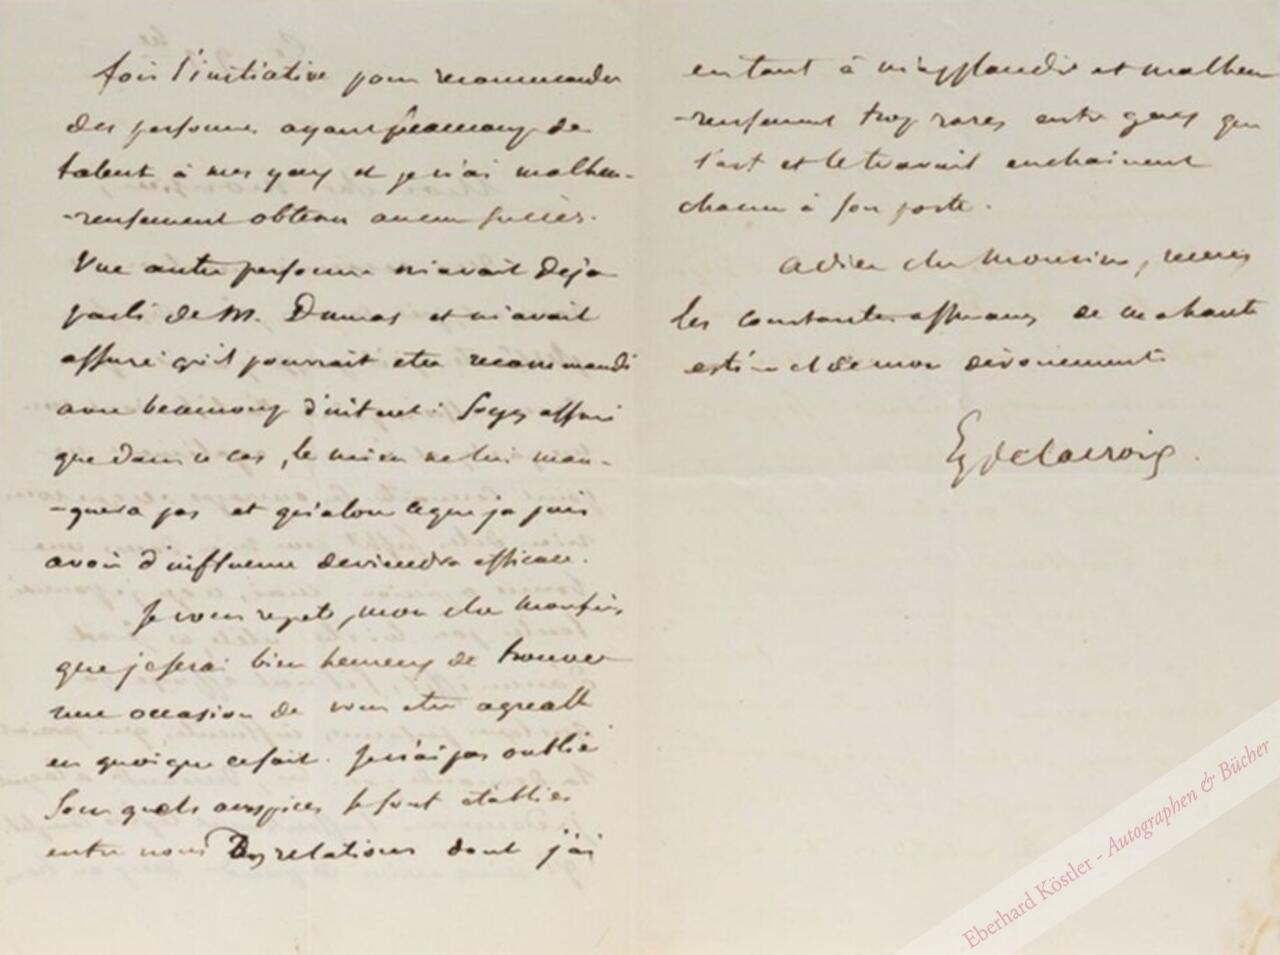 fois l'initiative pour recommander
des personnes ayant beaucoup de
talent à mes yeux et je n'ai malheu-
-reusement obtenu aucun succès.
Une autre personne m'avait deja
parlé de M. Dumas et m'avait
assuré qu'il pourrait etre recommandé
avec beaucoup d'interet : Soyez assuré
que dans ce cas, le mien ne lui man-
-quera pas et qu'alors ce que je puis
avoir d'influence deviendra efficace.
Je vous repete, mon cher monsieur,
que je serai bien heureux de trouver
une occasion de vous etre agreable
en quoi que ce soit. Je n'ai pas oublié
sous quels auspices se sont etablies
entre nous des relations dont j'ai
en tout à m'applaudir et malheu
-reusement trop rares entre gens que
l'art et le travail enchainent
chacun à son poste.
Adieu cher Monsieur, recevez
les constantes assurances de ma haute
estime et de mon dévouement
EugDelacroix.
Eberhard Köstler - Autographen & Bücher